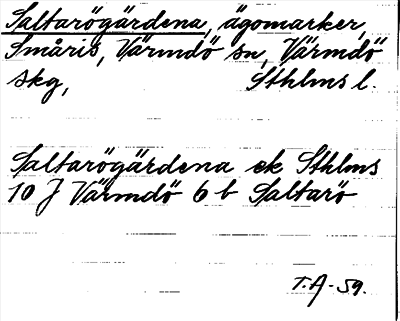 Saltarögärdena, ägomarker,
Småris, Värmdö sn, Värmdö
skg, Sthlms l.
Saltarögärdena ek Sthlms
10 J Värmdö 6 b Saltarö
T.A-59.